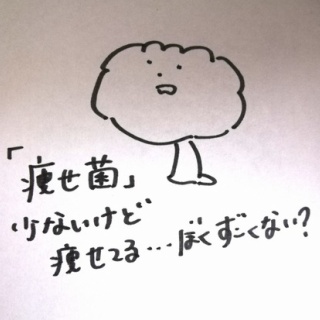 「痩せ菌」
少ないけど
痩せてる…ぼくずごくない?